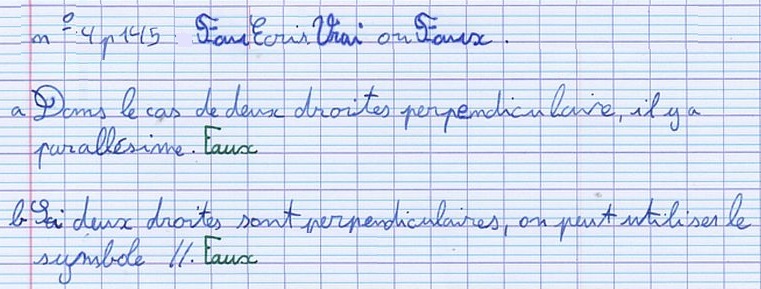 n° 4 p 145 : Fau Ecris Vrai ou Faux.
a Dans le cas de deux droites perpendiculaire, il y a
parallésime. Faux
b Si deux droites sont perpendiculaires, on peut utiliser le
symbole //. Faux